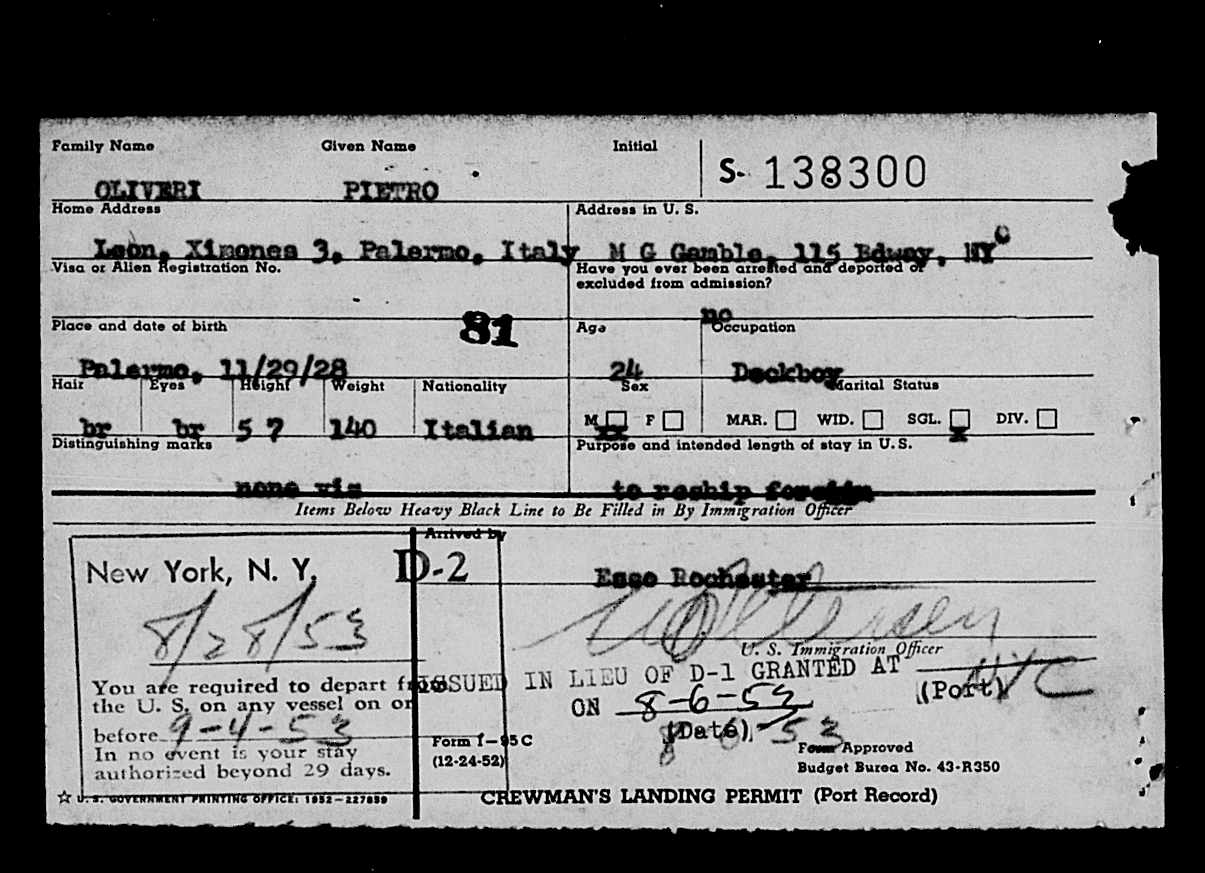 Family Name Given Name Initial
OLIVERI PIETRO S- 138300
Home Address Address in U. S.
Leon, Ximones 3, Palermo, Italy M G Gamble, 115 Bdway, NYC
Visa or Alien Registration No. Have you ever been arrested and deported or
excluded from admission?
no
Place and date of birth 81 Age Occupation
Palermo, 11/29/28 24 Deckboy
Hair Eyes Height Weight Nationality Sex Marital Status
br br 5 7 140 Italian M F MAR. WID. SGL. DIV.
xx x
Distinguishing marks Purpose and intended length of stay in U.S.
none vis to reship foreign
Items Below Heavy Black Line to Be Filled in By Immigration Officer
Arrived by
New York, N. Y. D-2 Esso Rochester
8/28/53
U. S. Immigration Officer
You are required to depart from ISSUED IN LIEU OF D-1 GRANTED AT NYC
the U. S. on any vessel on or ON 8-6-53 (Port)
before 9-4-53 (Date) 8 6 53
In no event is your stay Form I-95C Form Approved
authorized beyond 29 days. (12-24-52) Budget Burea No. 43-R350
☆ U. S. GOVERNMENT PRINTING OFFICE: 1952-227859 CREWMAN'S LANDING PERMIT (Port Record)